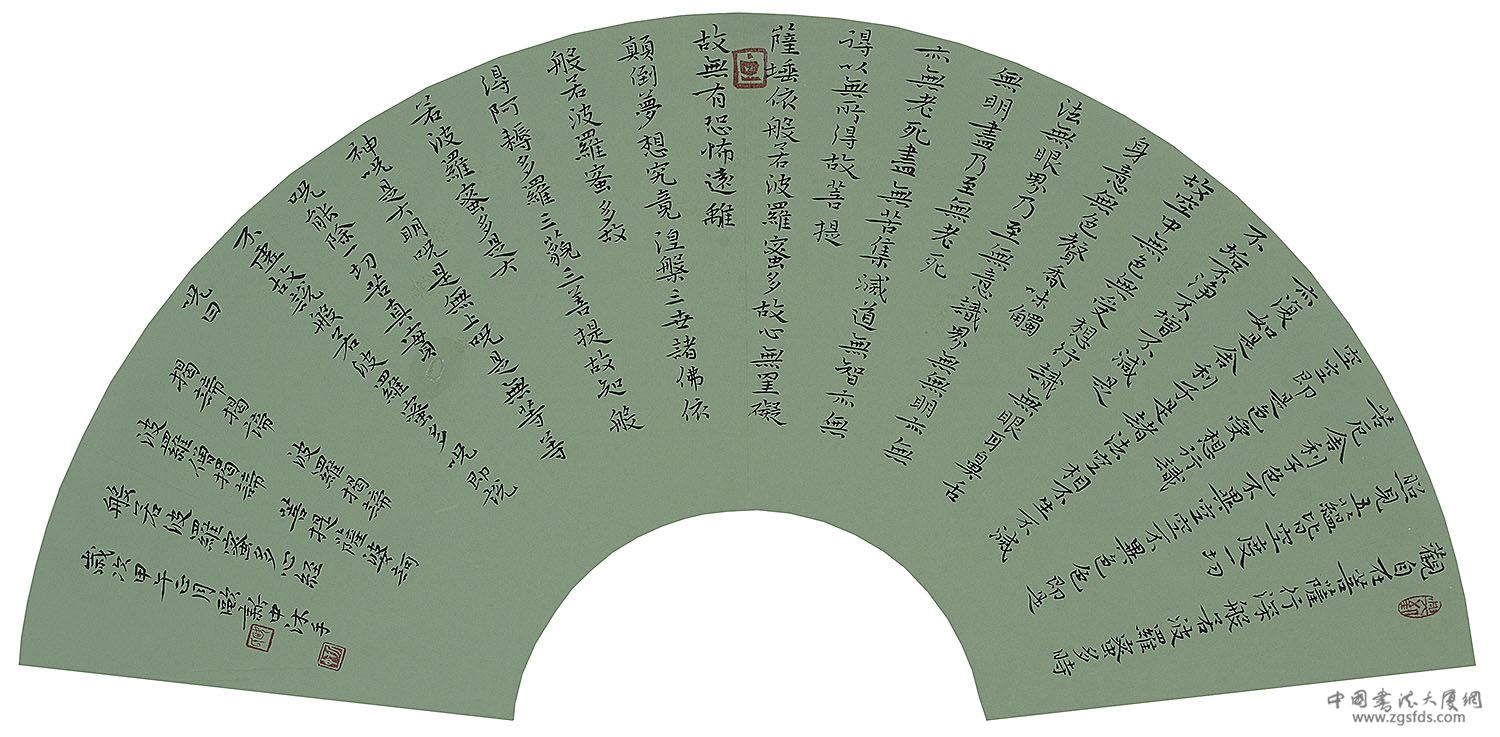 觀自在菩薩行深般若波羅蜜多時
照見五蘊皆空度一切
苦厄舍利子色不異空空不異色色即是
空空即是色受想行識
亦復如是舍利子是諸法空相不生不滅
不垢不淨不增不減是
故空中無色無受想行識無眼耳鼻舌
身意無色聲香味觸
法無眼界乃至無意識界無無明亦無
無明盡乃至無老死
亦無老死盡無苦集滅道無智亦無
得以無所得故菩提
薩埵依般若波羅蜜多故心無罣礙
故無有恐怖遠離
顛倒夢想究竟涅槃三世諸佛依
般若波羅蜜多故
得阿耨多羅三藐三菩提故知般
若波羅蜜多是大
神呪是大明呪是無上呪是無等等
呪能除一切苦真實
不虛故說般若波羅蜜多呪即說
呪曰
揭諦揭諦 波羅揭諦
波羅僧揭諦 菩提薩婆訶
般若波羅蜜多心經
歲次甲午月歐新中沐手
中國書法大廈網
www.zgsfds.com